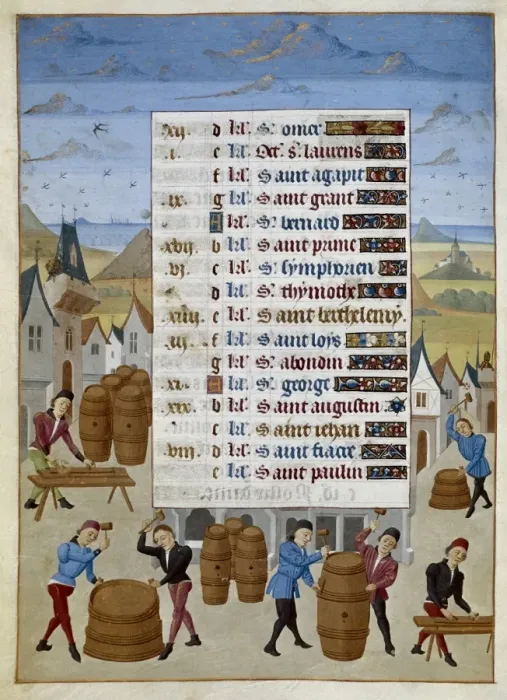 xij. d kl' S' omer
.i. e kl' Oct' s' laurens
f kl' Saint agapit
.ix. g kl' Saint grant
A kl' S' bernard
.xvij b kl' Saint prime
.vj. c kl' S' symphorien
d kl' S' thymothe
xiiij e kl' Saint berthelemy.
.iij. f kl' Saint loÿs
g kl' S' abondin
.xi. A kl' S' george
.xix. b kl' Saint augustin
c kl' Saint iehan
.viij d kl' Saint fiacre
e kl' Saint paulin